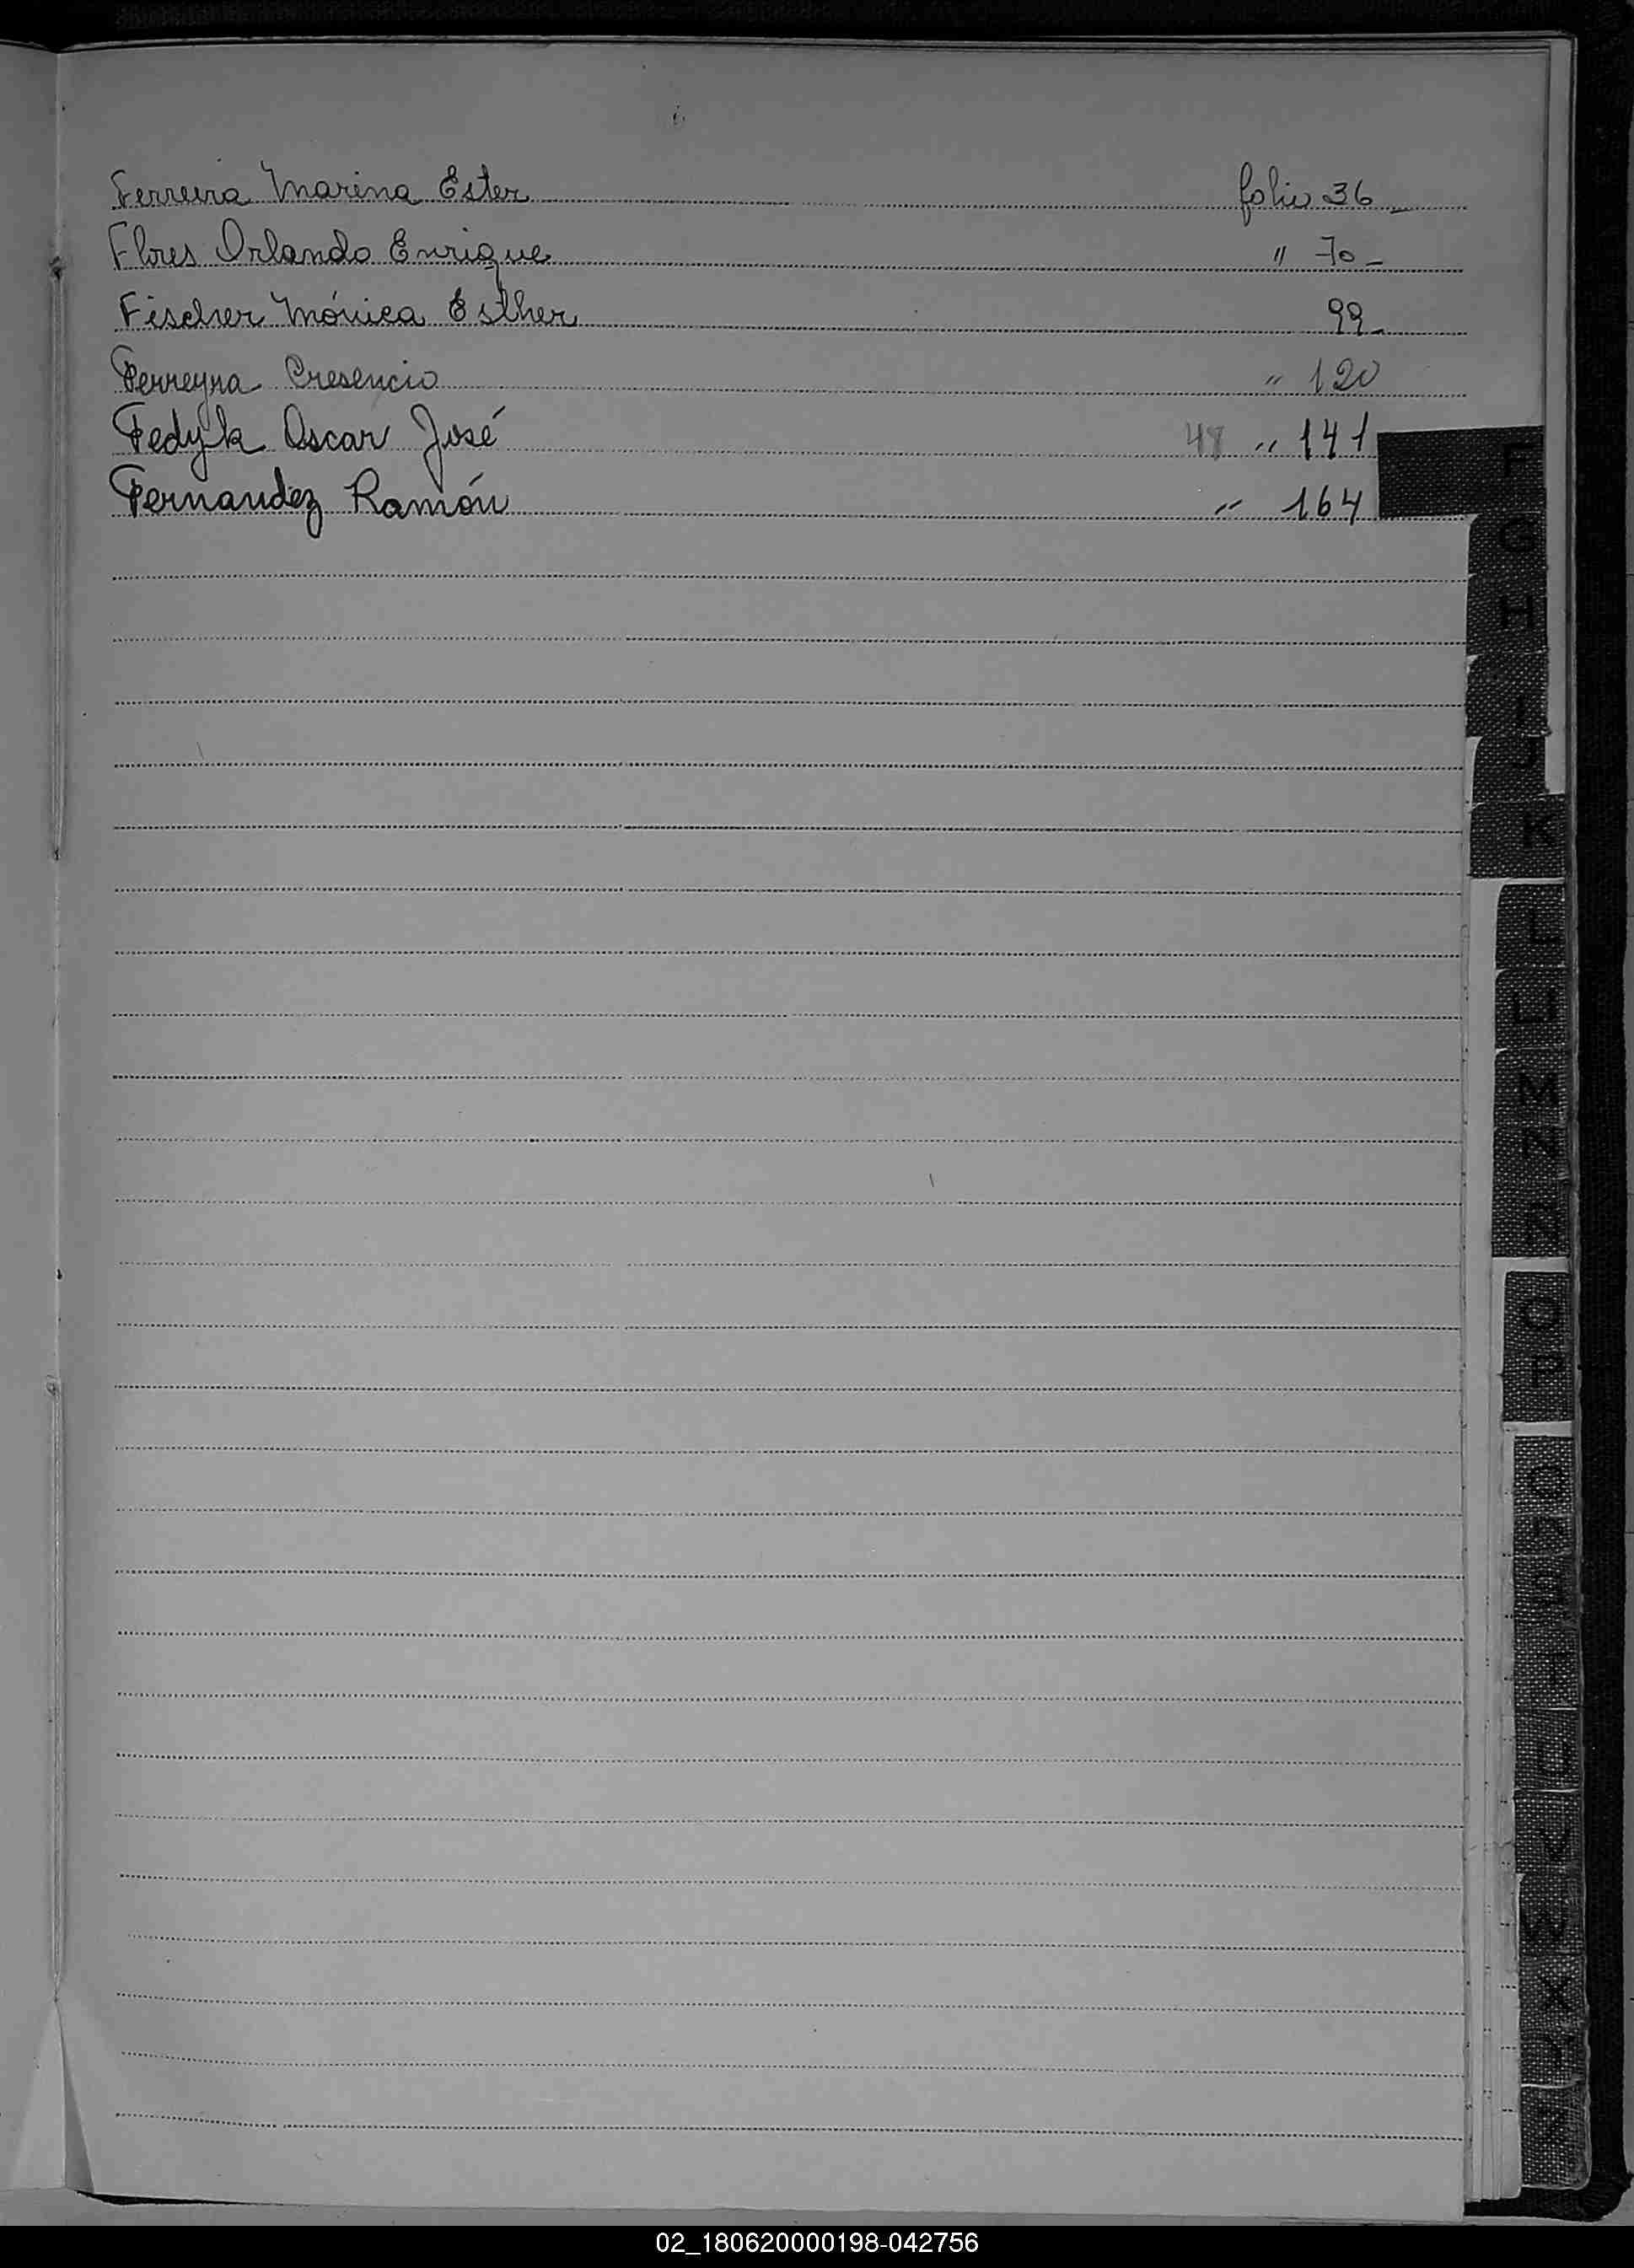 Ferreira Marina Ester folio 36 -
Flores Orlando Enrique " 70 -
Fischer Mónica Esther 99 -
Ferreyra Cresencio " 120
Fedyk Oscar José 48 " 141
Fernandez Ramón " 164
F
G
H
I
J
K
L
LL
M
N
Ñ
O
P
Q
R
S
T
U
V
W
X
Y
Z
02_180620000198-042756